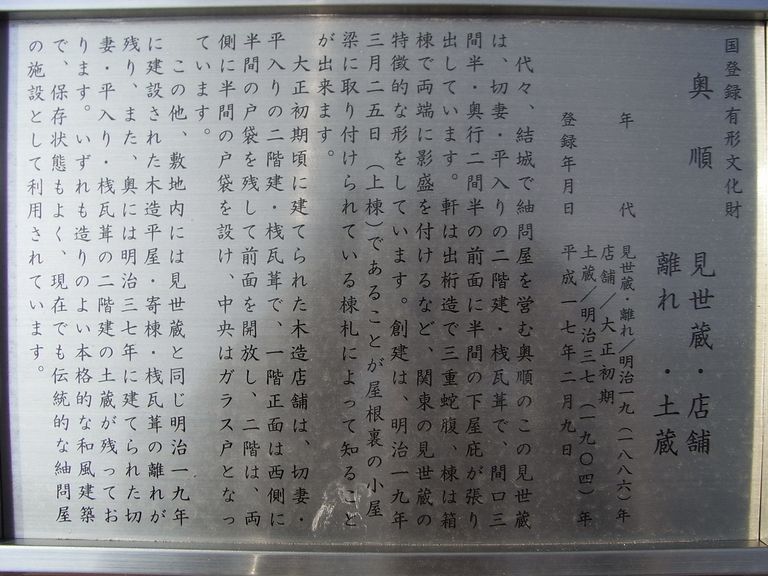 国登録有形文化財
奥順 見世蔵・店舗
離れ・土蔵
年代 見世蔵・離れ／明治一九（一八八六）年
店舗／大正初期
土蔵／明治三七（一九〇四）年
登録年月日 平成一七年二月九日
代々、結城で紬問屋を営む奥順のこの見世蔵
は、切妻・平入りの二階建・桟瓦葺で、間口三
間半・奥行二間半の前面に半間の下屋庇が張り
出しています。軒は出桁造で三重蛇腹、棟は箱
棟で両端に影盛を付けるなど、関東の見世蔵の
特徴的な形をしています。創建は、明治一九年
三月二五日（上棟）であることが屋根裏の小屋
梁に取り付けられている棟札によって知ること
が出来ます。
大正初期頃に建てられた木造店舗は、切妻・
平入りの二階建・桟瓦葺で、一階正面は西側に
半間の戸袋を残して前面を開放し、二階は、両
側に半間の戸袋を設け、中央はガラス戸となっ
ています。
この他、敷地内には見世蔵と同じ明治一九年
に建設された木造平屋・寄棟・桟瓦葺の離れが
残り、また、奥には明治三七年に建てられた切
妻・平入り・桟瓦葺の二階建の土蔵が残ってお
ります。いずれも造りのよい本格的な和風建築
で、保存状態もよく、現在でも伝統的な紬問屋
の施設として利用されています。